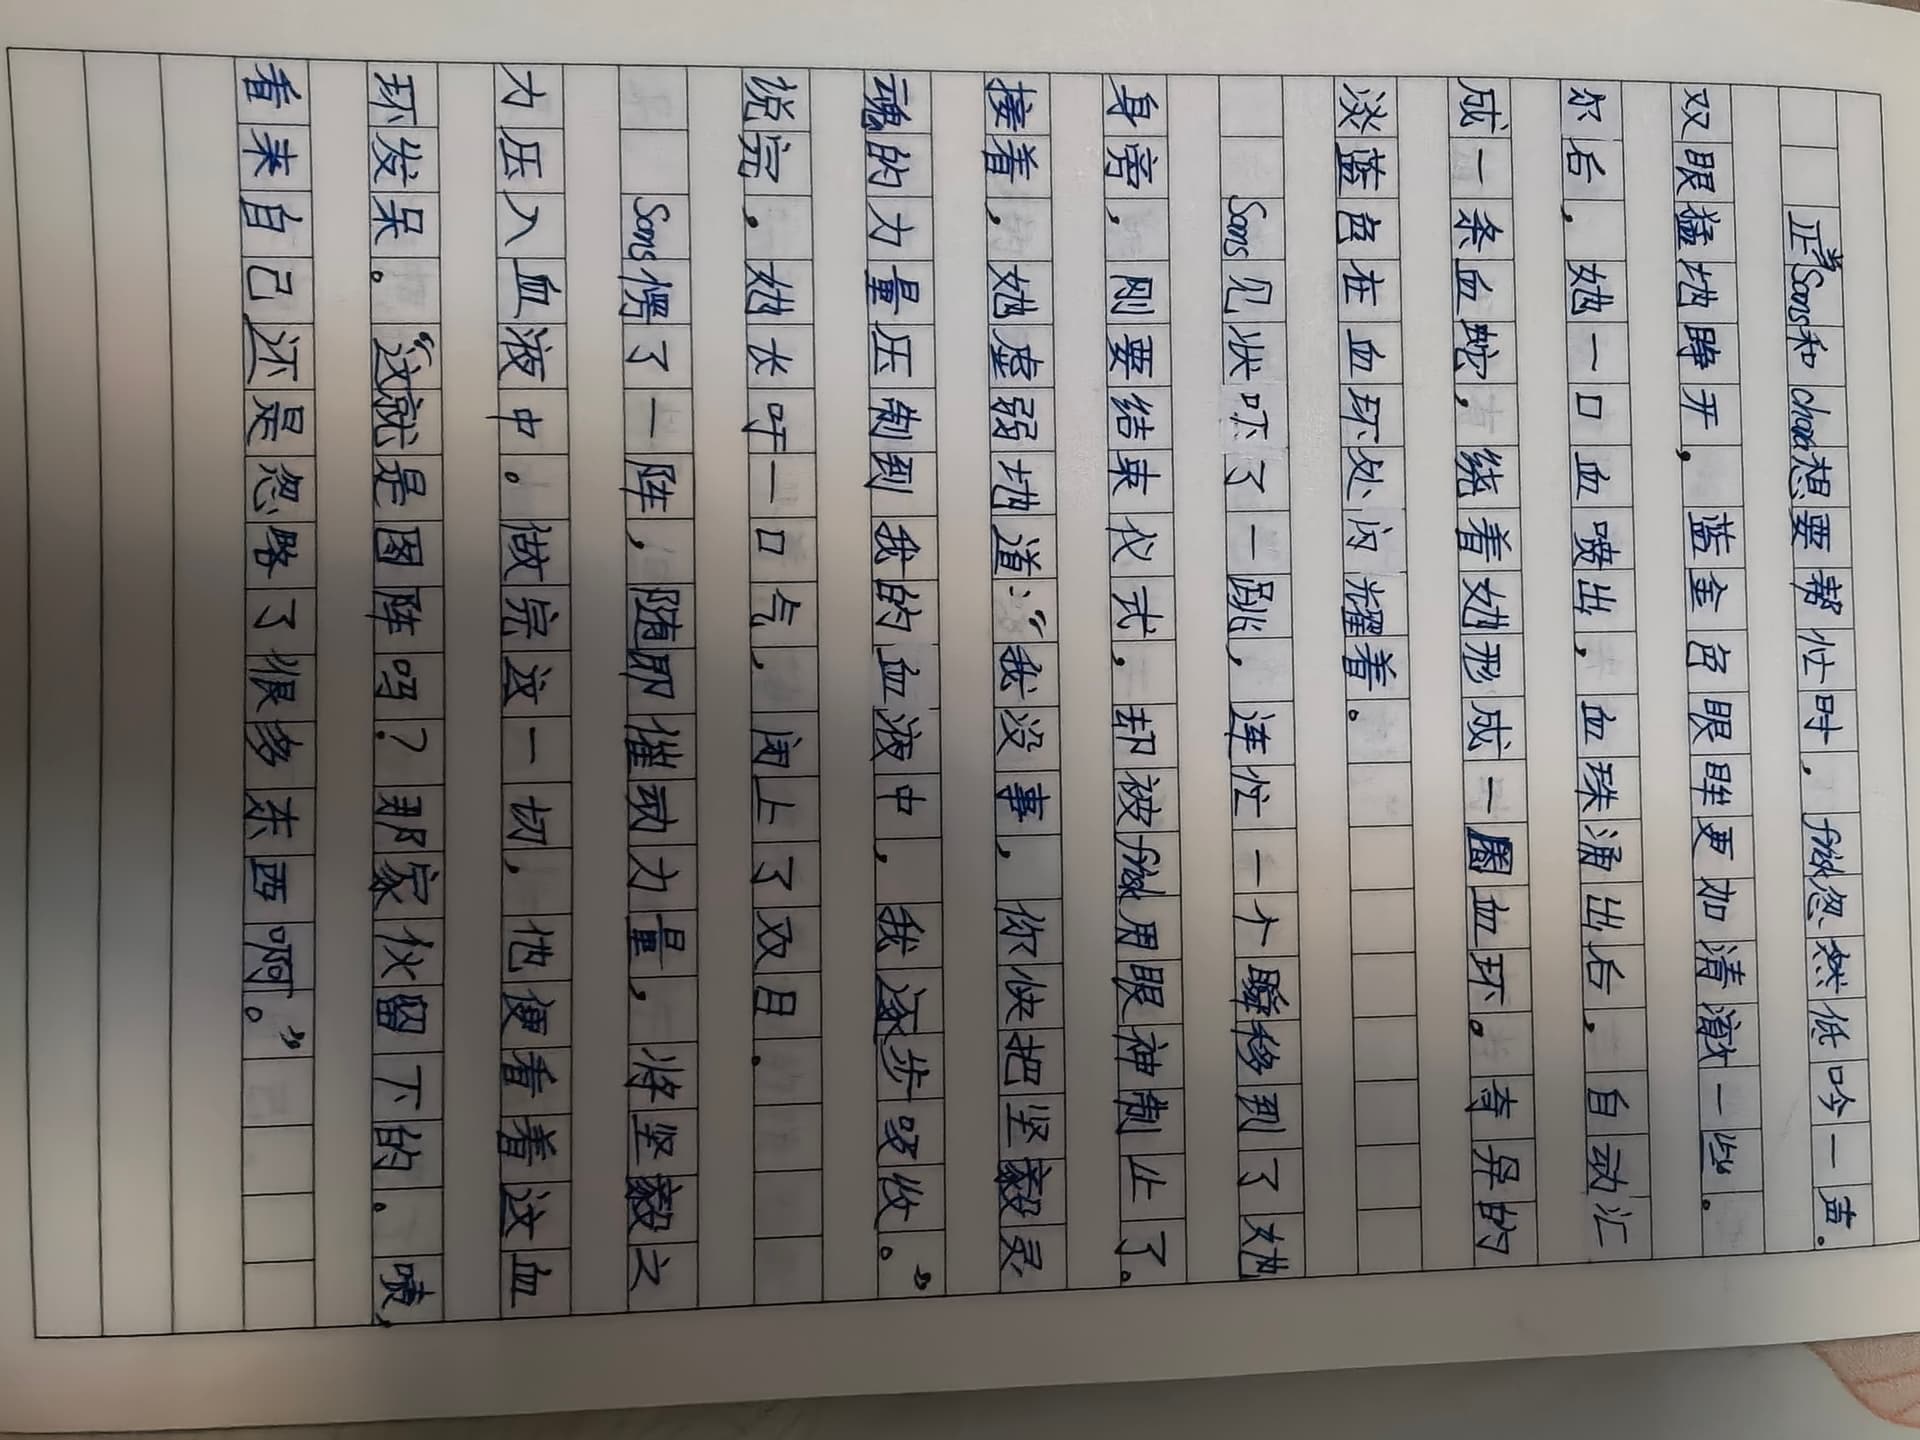 正当Sans和chara想要帮忙时，frisk忽然低吟一声。
双眼猛地睁开，蓝金色眼眸更加清澈一些。
尔后，她一口血喷出，血珠涌出后，自动汇
成一条血蛇，绕着她形成一圈血环。奇异的
淡蓝色在血环处闪耀着。
Sans见状吓了一跳，连忙一个瞬移到了她
身旁，刚要结束仪式，却被frisk用眼神制止了。
接着，她虚弱地道：“我没事，你快把坚毅灵
魂的力量压制到我的血液中，我逐步吸收。”
说完，她长吁一口气，闭上了双目。
Sans愣了一阵，随即催动力量，将坚毅之
力压入血液中。做完这一切，他便看着这血
环发呆。“这就是图阵吗？那家伙留下的。啧，
看来自己还是忽略了很多东西啊。”